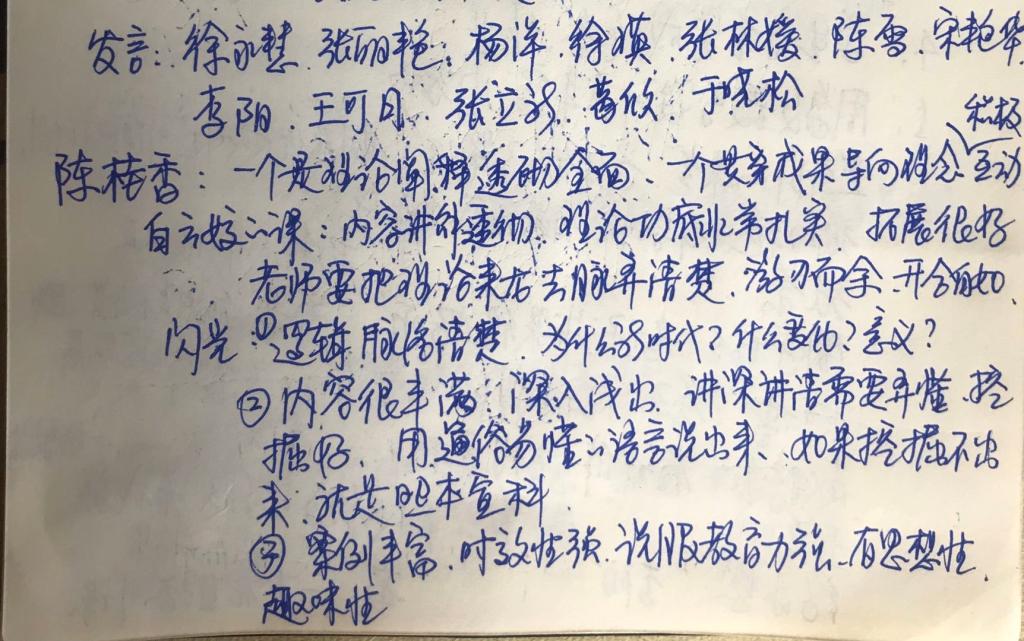 发言：徐永慧 张丽艳 杨洋 徐瑛 张林媛 陈雪 宋艳华
李阳 王可月 张立新 葛欣 于晓松
积极
陈桂香：一个是理论阐释透彻全面、一个贯穿成果导向理念 互动
白云姣的课：内容讲解透彻、理论功底非常扎实 拓展很好
老师要把理论来龙去脉弄清楚、游刃而余、开合自如、
闪光：①逻辑脉络清楚、为什么新时代？什么变化？意义？
②内容很丰满：深入浅出、讲深讲清需要弄懂、挖
掘好、用通俗易懂的语言说出来、如果挖掘不出
来、就是照本宣科.
③案例丰富、时效性强、说服教育力强、有思想性、
趣味性